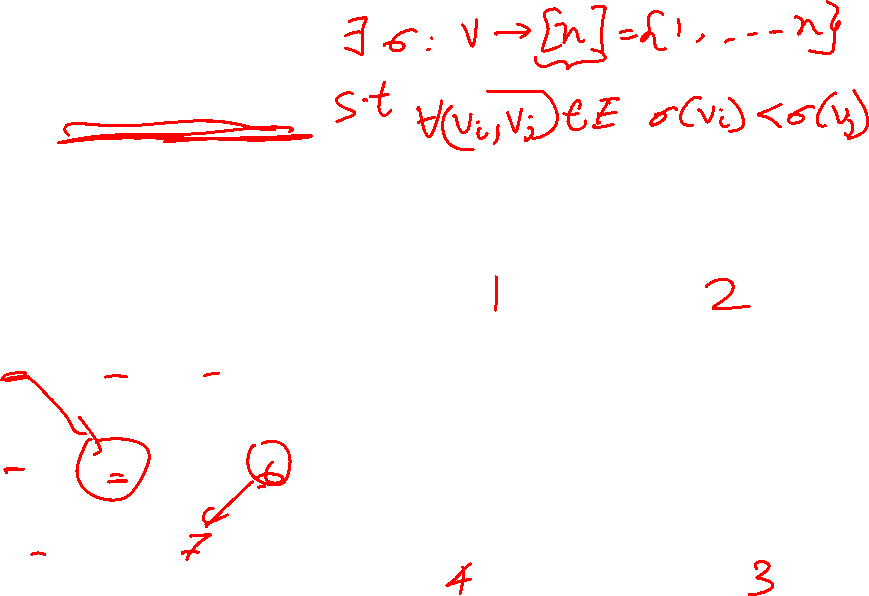 ∃ σ: V → [n] = {1, ... n}
s.t ∀(vᵢ, vⱼ) ∈ E σ(vᵢ) < σ(vⱼ)
1 2
6
7
4 3